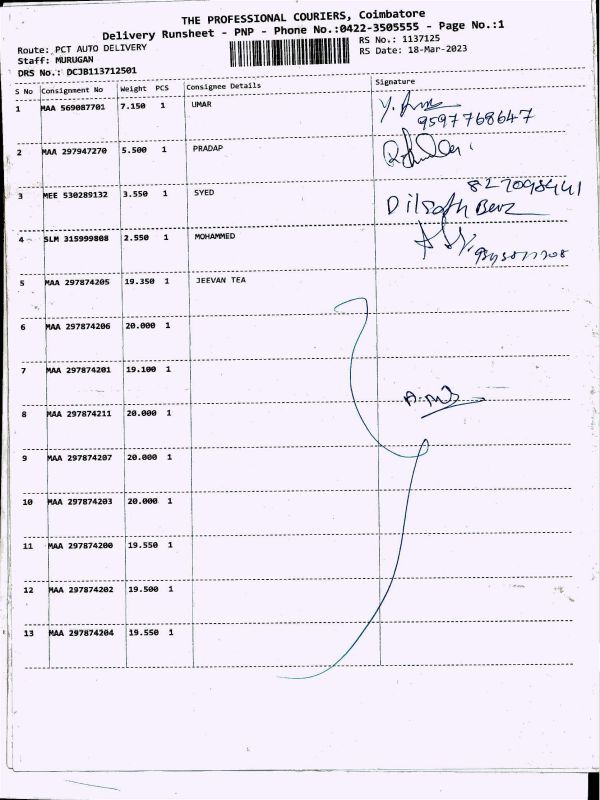 THE PROFESSIONAL COURIERS, Coimbatore
Delivery Runsheet - PNP - Phone No.:0422-3505555 - Page No.:1
Route: PCT AUTO DELIVERY
RS No.: 1137125
Staff: MURUGAN
RS Date: 18-Mar-2023
DRS No.: DCJB113712501
S No Consignment No Weight PCS Consignee Details Signature
1 MAA 569087701 7.150 1 UMAR
9597768647
2 MAA 297947270 5.500 1 PRADAP
3 MEE 530289132 3.550 1 SYED
Dilsath
4 SLM 315999808 2.550 1 MOHAMMED
5 MAA 297874205 19.350 1 JEEVAN TEA
6 MAA 297874206 20.000 1
7 MAA 297874201 19.100 1
8 MAA 297874211 20.000 1
9 MAA 297874207 20.000 1
10 MAA 297874203 20.000 1
11 MAA 297874200 19.550 1
12 MAA 297874202 19.500 1
13 MAA 297874204 19.550 1